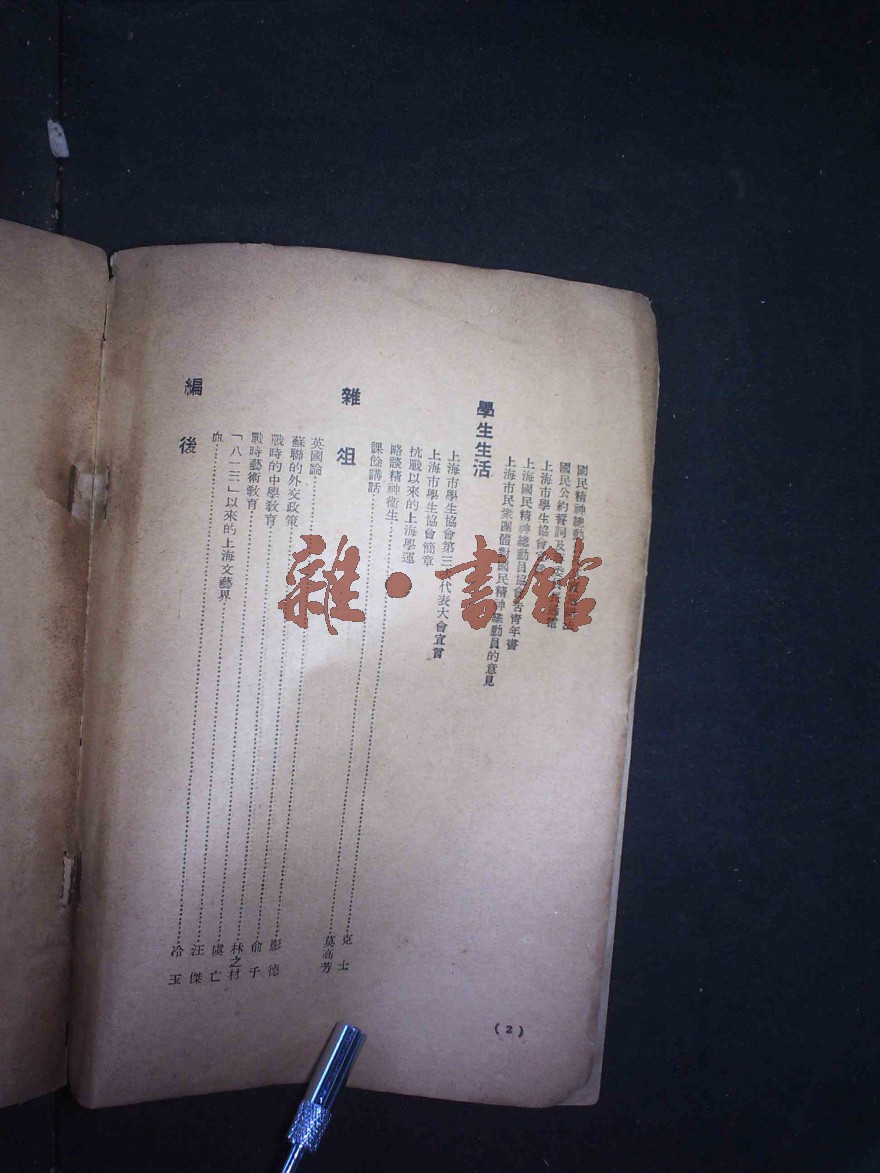 國民精神總動
國民公約誓詞及
上海市學生協會
上海國民精神總動員協會告青年書
上海市民衆團體對國民精神總動員的意見
學生生活
上海市學生協會第三代表大會宣言
上海市學生協會簡章
抗戰以來的上海學運
略談精神衞生 克士
課餘講話 莫高芳
雜俎
英國論 影德
蘇聯的外交政策 俞千
戰時的中學教育 林之材
戰時藝術教育 虞亡
「八一三」以來的上海文藝界 汪傑
血 冷玉
編後
(2)
雜·書館